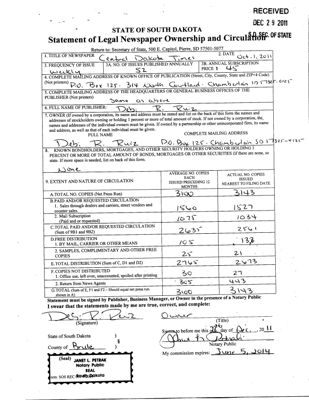 RECEIVED
DEC 29 2011
S.D. SEC. OF STATE
STATE OF SOUTH DAKOTA
Statement of Legal Newspaper Ownership and Circulation
Return to: Secretary of State, 500 E. Capitol, Pierre, SD 57501-5077
1. TITLE OF NEWSPAPER Central Dakota Times
2. DATE Oct. 1, 2011
3. FREQUENCY OF ISSUE weekly
3A. NO. OF ISSUES PUBLISHED ANNUALLY 52
3B. ANNUAL SUBSCRIPTION PRICE $ 45
4. COMPLETE MAILING ADDRESS OF KNOWN OFFICE OF PUBLICATION (Street, City, County, State and ZIP+4 Code)
(Not printers) P.O. Box 125 - 314 North Courtland - Chamberlain SD 57325-0125
5. COMPLETE MAILING ADDRESS OF THE HEADQUARTERS OF GENERAL BUSINESS OFFICES OF THE
PUBLISHER (Not printer) Same as above
6. FULL NAME OF PUBLISHER: Debi R. Ruiz
7. OWNER (If owned by a corporation, its name and address must be stated and
FULL NAME
COMPLETE MAILING ADDRESS
Debi R. Ruiz P.O. Box 125 - Chamberlain SD 57325-0125
8. KNOWN BONDHOLDERS, MORTGAGES, AND OTHER SECURITY HOLDERS OWNING OR HOLDING 1
PERCENT OR MORE OF TOTAL AMOUNT OF BONDS, MORTGAGES OR OTHER SECURITIES (If there are none, so
state. If more space is needed, list on back of this form.
None
9. EXTENT AND NATURE OF CIRCULATION
AVERAGE NO. COPIES EACH ISSUED PRECEDING 12 MONTHS
ACTUAL NO. COPIES ISSUED NEAREST TO FILING DATE
A. TOTAL NO. COPIES (Net Press Run) 3100 3143
B. PAID AND/OR REQUESTED CIRCULATION
1. Sales through dealers and carriers, street vendors and
counter sales. 1560 1527
2. Mail Subscription
(Paid and or requested) 1075 1034
C. TOTAL PAID AND/OR REQUESTED CIRCULATION
(Sum of 9B1 and 9B2) 2635 2561
D. FREE DISTRIBUTION
1. BY MAIL, CARRIER OR OTHER MEANS 105
2. SAMPLES, COMPLIMENTARY AND OTHER FREE
COPIES 25 21
E. TOTAL DISTRIBUTION (Sum of C, D1 and D2) 2765 2673
F. COPIES NOT DISTRIBUTED
1. Office use, left over, unaccounted, spoiled after printing 30 27
2. Return from News Agents 305 443
G. TOTAL (Sum of E, F1 and F2 - Should equal net press run
shown in A) 3100 3143
Statement must be signed by Publisher, Business Manager, or Owner in the presence of a Notary Public
I swear that the statements made by me are true, correct, and complete:
Debi R. Ruiz Owner
(Signature) (Title)
State of South Dakota )
Sworn to before me this day of Dec., 2011
County of Brule ) §
Notary Public
(Seal)
JANET L. PETRAK
Notary Public
SEAL
South Dakota
My commission expires: June 5, 2014